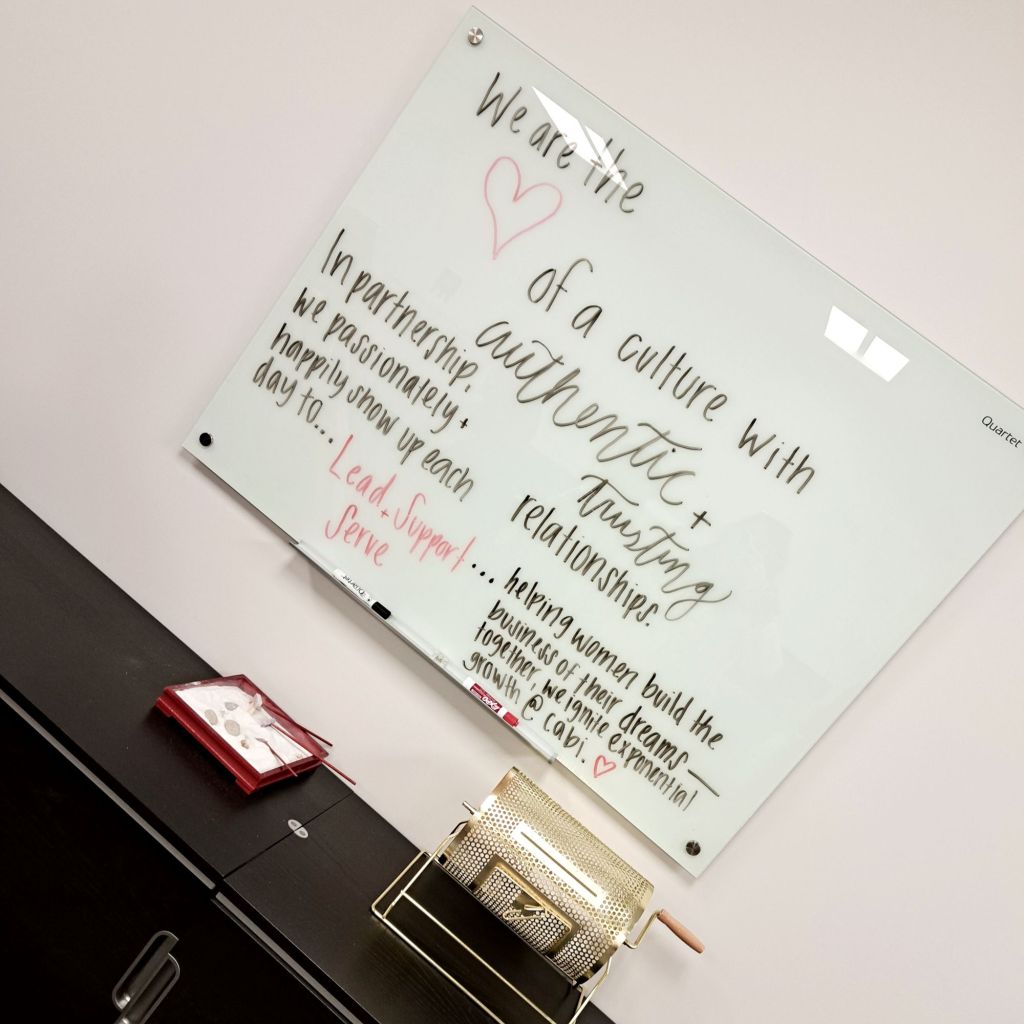 We are the
of a culture with
authentic +
trusting
relationships.
In partnership,
we passionately +
happily show up each
day to...
Lead + Support
Serve
... helping women build the
business of their dreams —
together, we ignite exponential
growth @ cabi.
Quartet
Quartet
EXPO